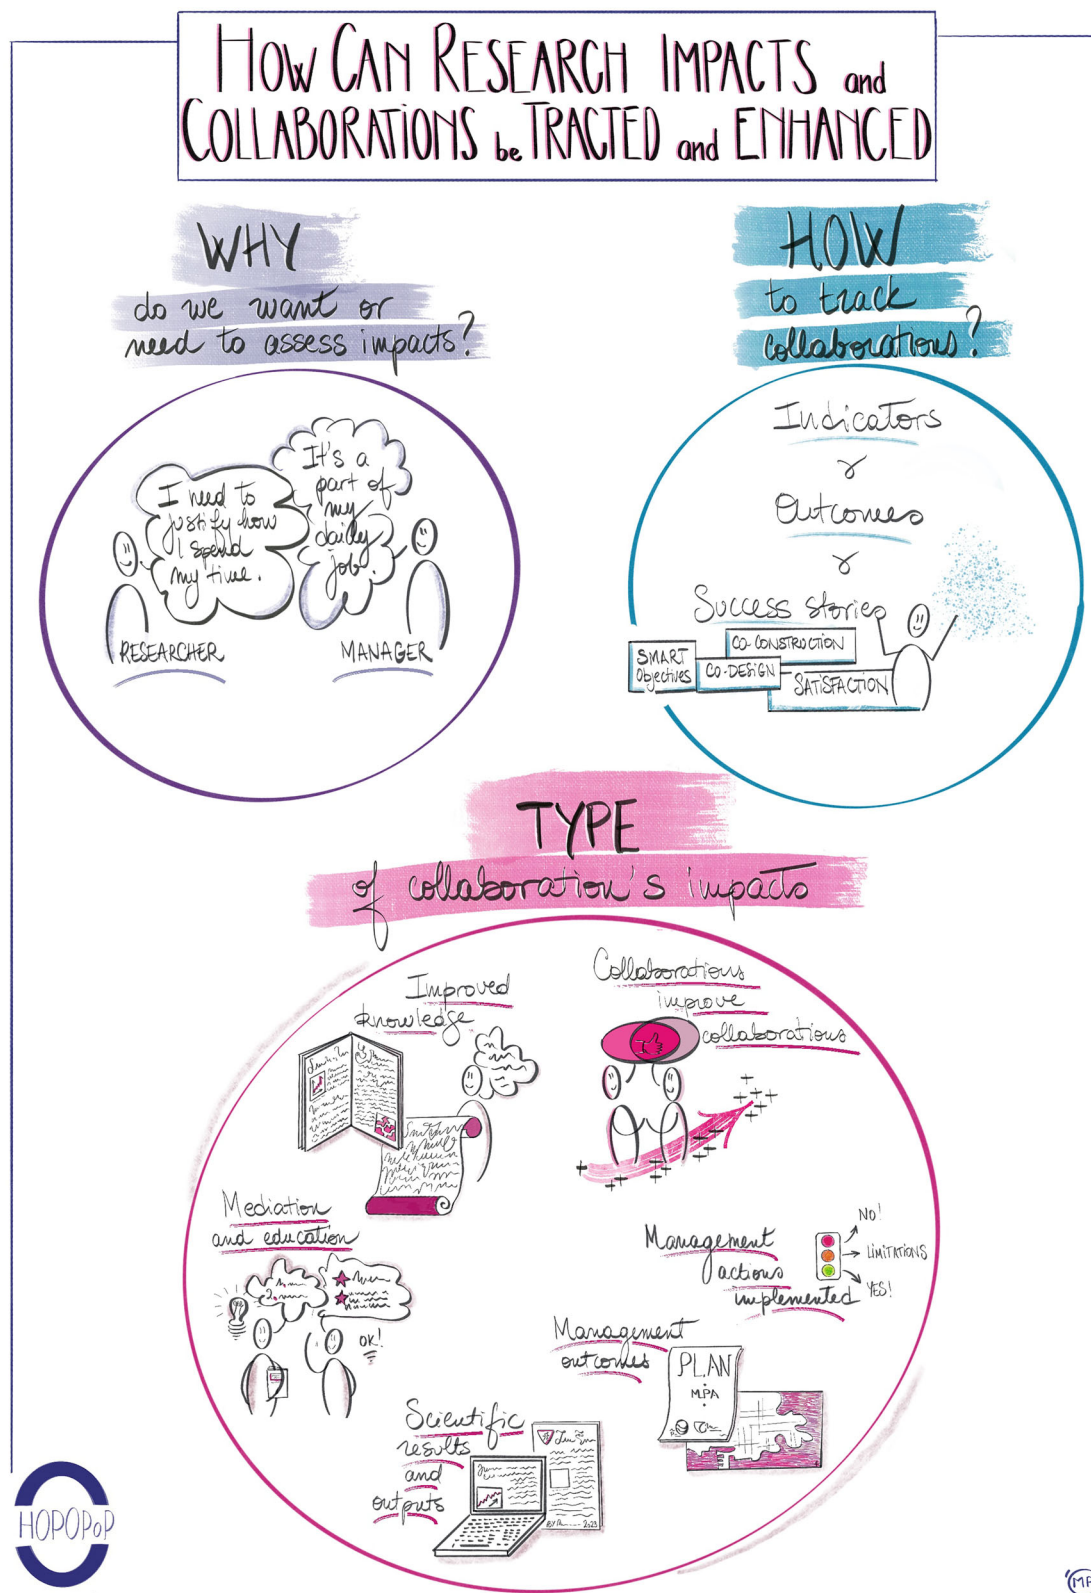 HOW CAN RESEARCH IMPACTS and
COLLABORATIONS be TRACTED and ENHANCED
WHY
do we want or
need to assess impacts?
I need to
justify how
I spend
my time.
It's a
part of
my
daily
job.
RESEARCHER
MANAGER
HOW
to track
collaborations?
Indicators
Outcomes
Success stories
SMART
Objectives
CO-CONSTRUCTION
CO-DESIGN
SATISFACTION
TYPE
of collaboration's impacts
Improved
knowledge
Collaborations
improve
collaborations
Mediation
and education
2.
OK!
Management
actions
implemented
NO!
LIMITATIONS
YES!
Management
outcomes
PLAN
MPA
Scientific
results
and
outputs
2023
HOPOPoP